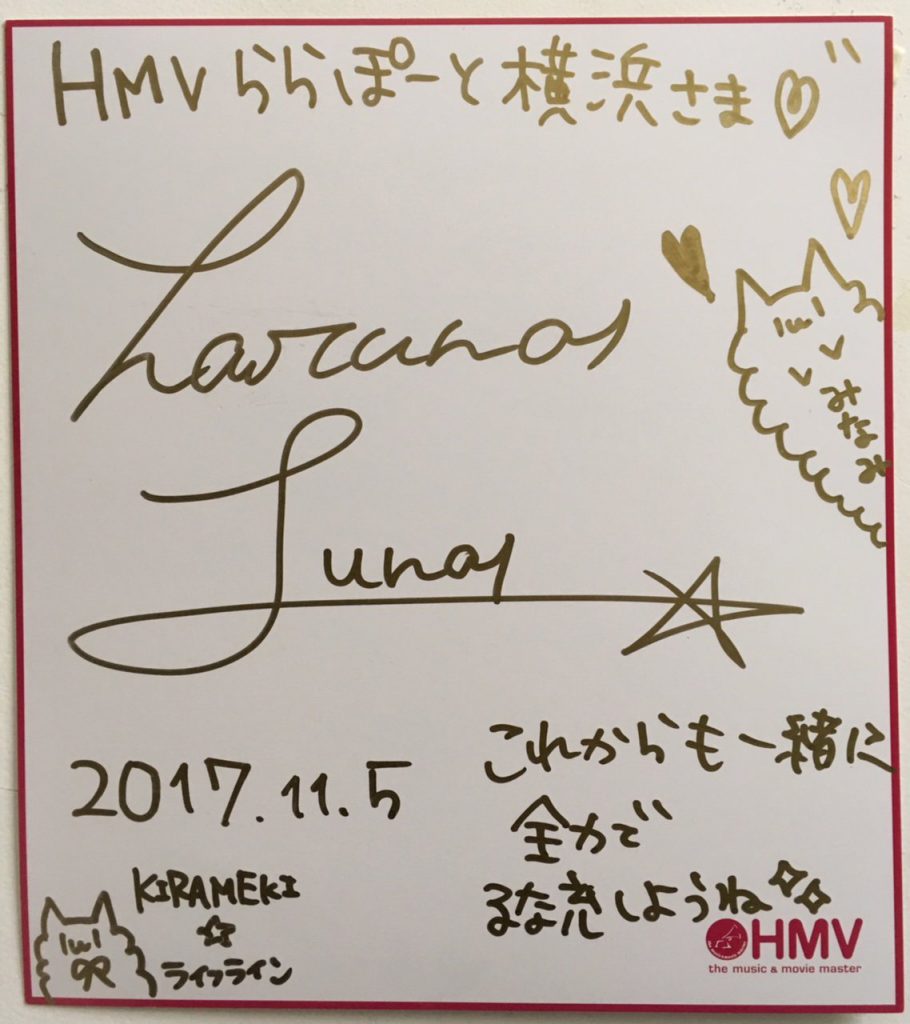 HMVららぽーと横浜さま
haruna
Luna
みなみ
2017.11.5
これからも一緒に
全力で
るな充しようね
KIRAMEKI
☆
ライフライン
HMV
the music & movie master